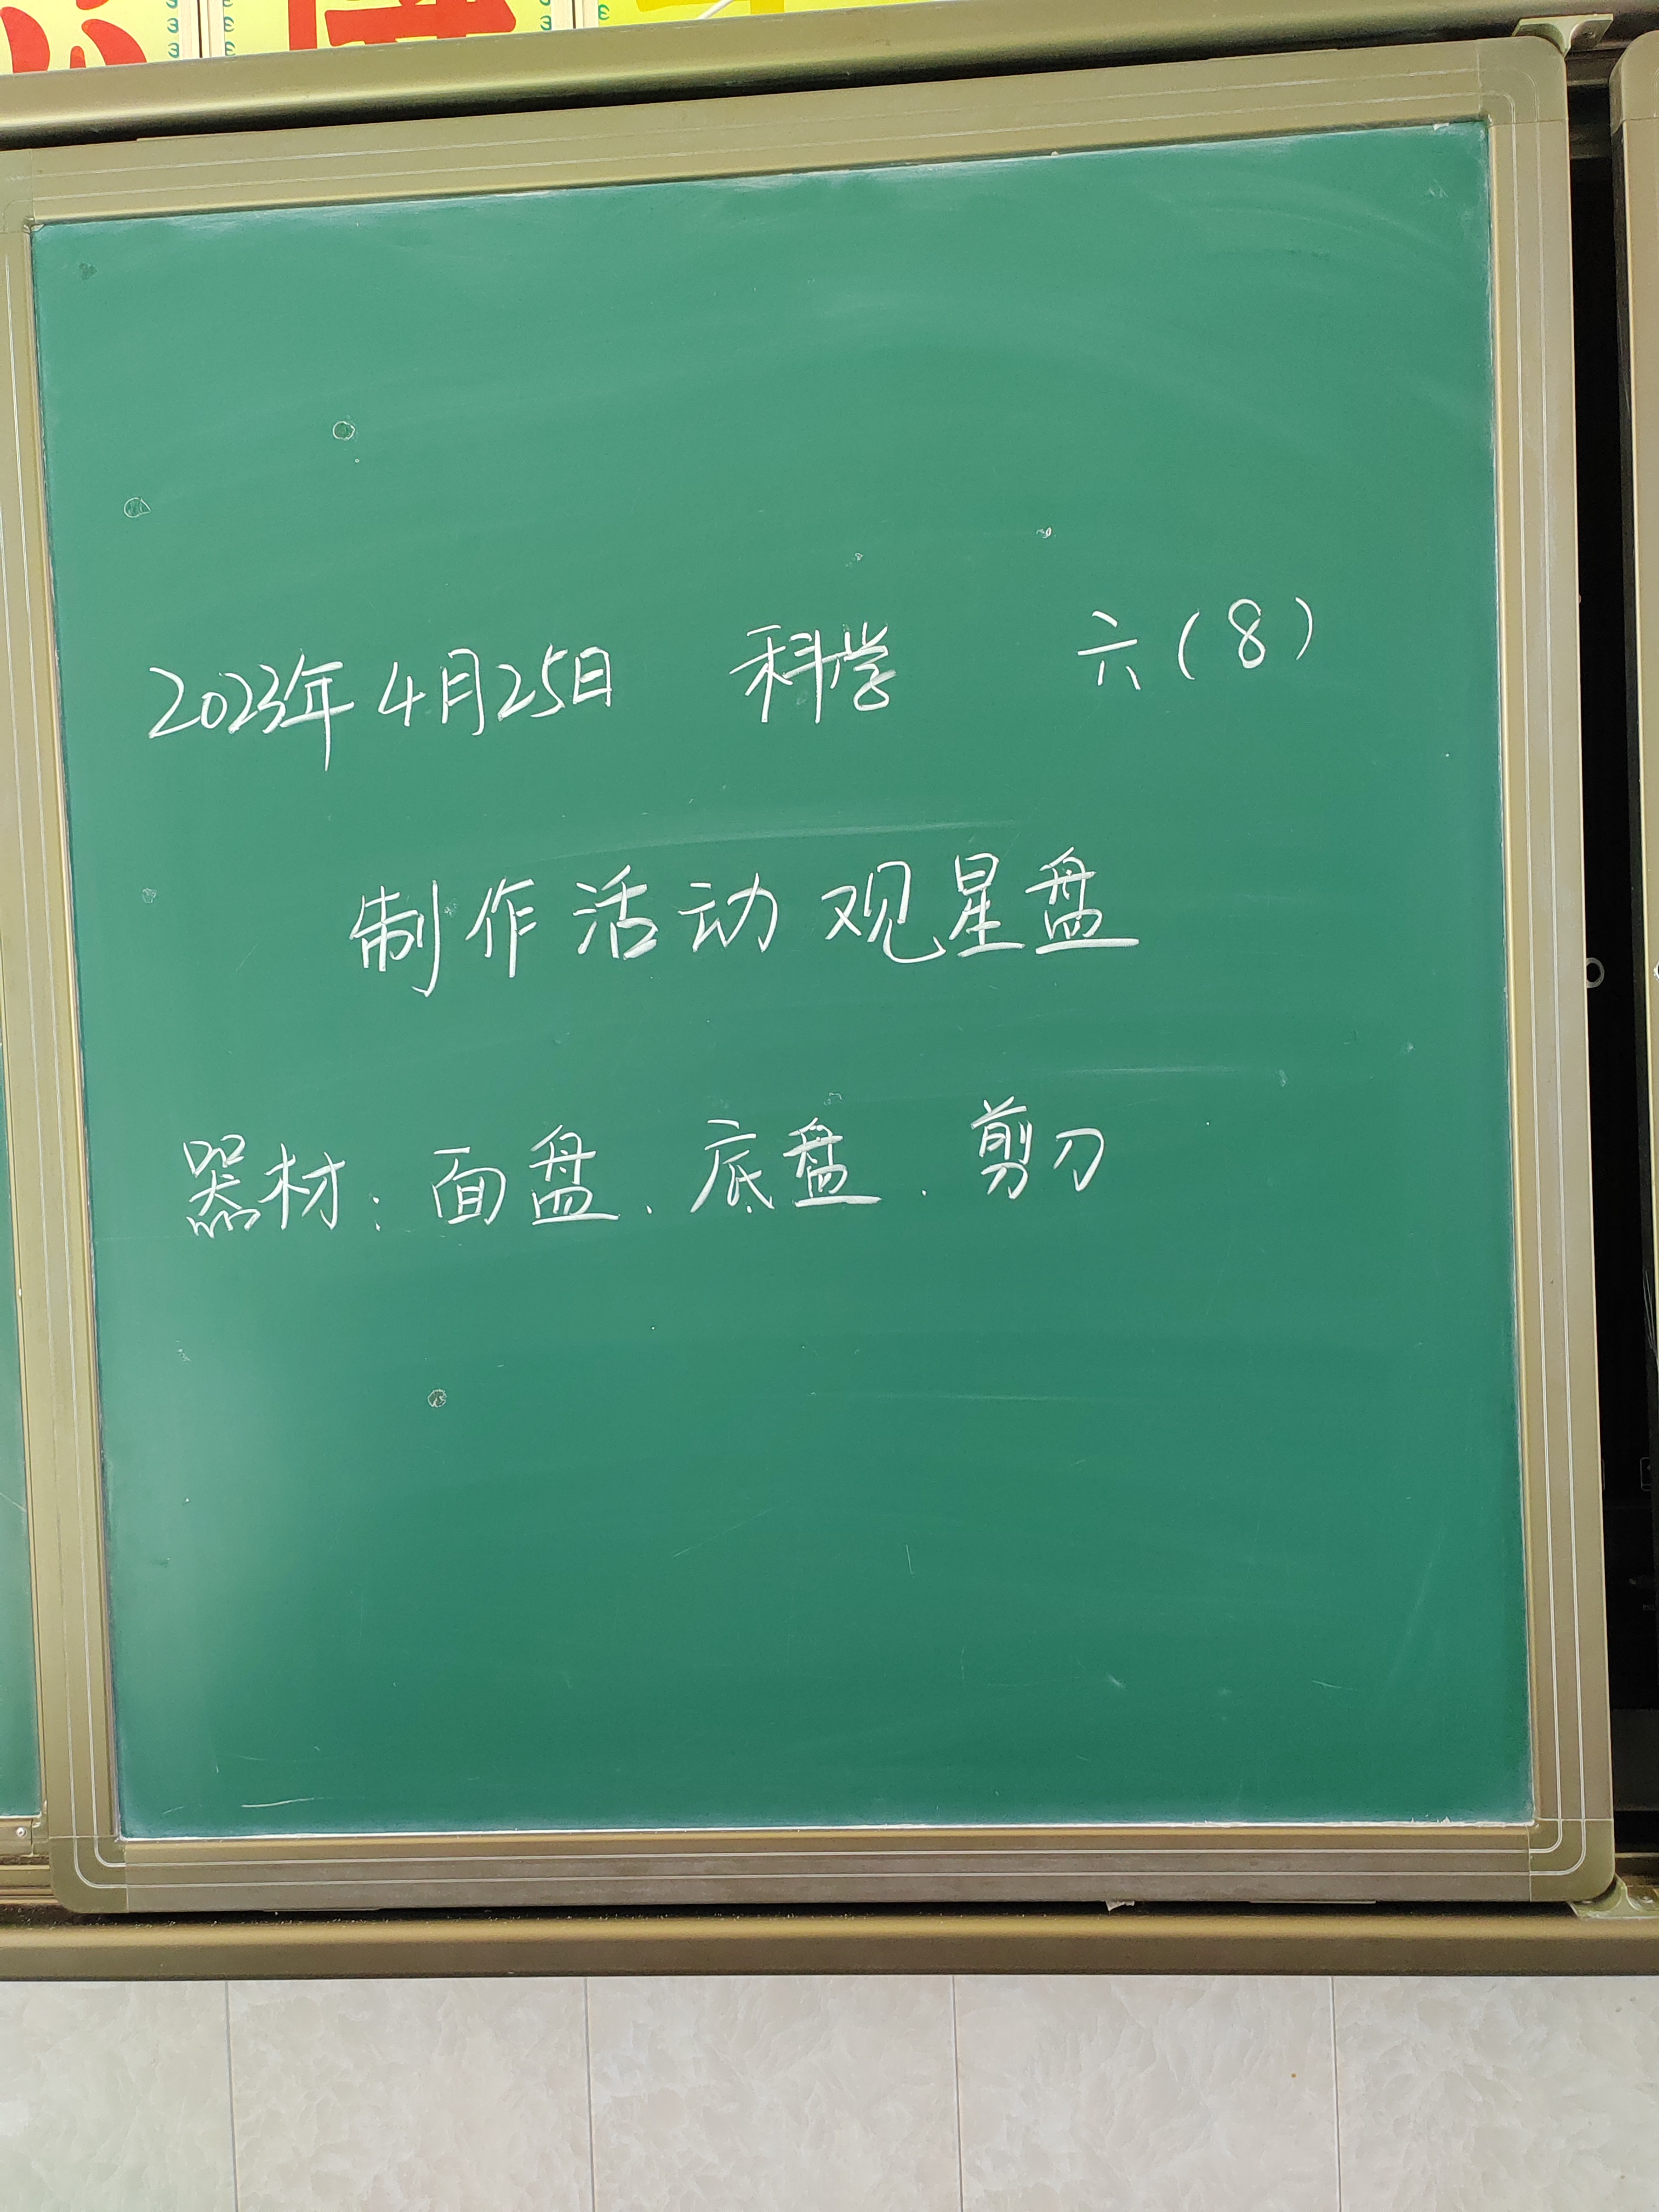 2023年4月25日 科学 六(8)
制作活动观星盘
器材:面盘、底盘、剪刀